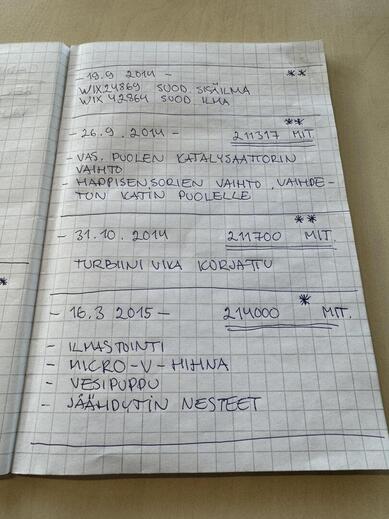 - 19.9 2014 - **
WIX24869 SUOD. SISÄILMA
WIX 42864 SUOD. ILMA
**
- 26.9.2014 - 211317 MIT.
- VAS. PUOLEN KATALYSAATTORIN
VAIHTO
- HAPPISENSORIEN VAIHTO, VAIHDE-
TUN KATIN PUOLELLE
**
- 31.10.2014 211700 MIT.
TURBIINI VIKA KORJATTU
*
- 16.3 2015 - 214000 MIT.
- ILMASTOINTI
- MICRO-V-HIHNA
- VESIPUPPU
- JÄÄHDYTIN NESTEET
*